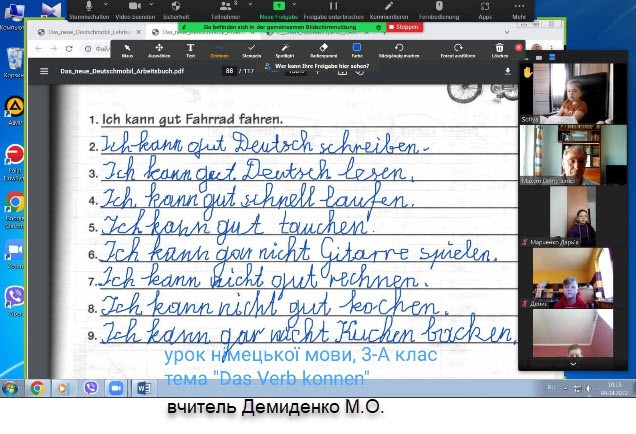 Stummschalten Video beenden Sicherheit Teilnehmer Neue Freigabe Freigabe unterbrechen Kommentieren Fernbedienung Apps Mehr
Sie befinden sich in der gemeinsamen Bildschirmnutzung Stoppen
Maus Auswählen Text Zeichnen Stempeln Spotlight Radiergummi Farbe Rückgängig machen Erneut ausführen Löschen
Wer kann Ihre Freigabe hier sehen?
Das_neue_Deutschmobil_Arbeitsbuch.pdf 88 / 117
1. Ich kann gut Fahrrad fahren.
2. Ich kann gut Deutsch schreiben.
3. Ich kann gut Deutsch lesen.
4. Ich kann gut schnell laufen.
5. Ich kann gut tauchen.
6. Ich kann gar nicht Gitarre spielen.
7. Ich kann nicht gut rechnen.
8. Ich kann nicht gut kochen.
9. Ich kann gar nicht Kuchen backen.
урок німецької мови, 3-А клас
тема "Das Verb konnen"
вчитель Демиденко М.О.
Sofiya
Maxym Demydenko
Марченко Дар'я
Денис
Корзина
AIMP
Google Chrome
Zoom
Viber
RU
10:15
04.04.2022